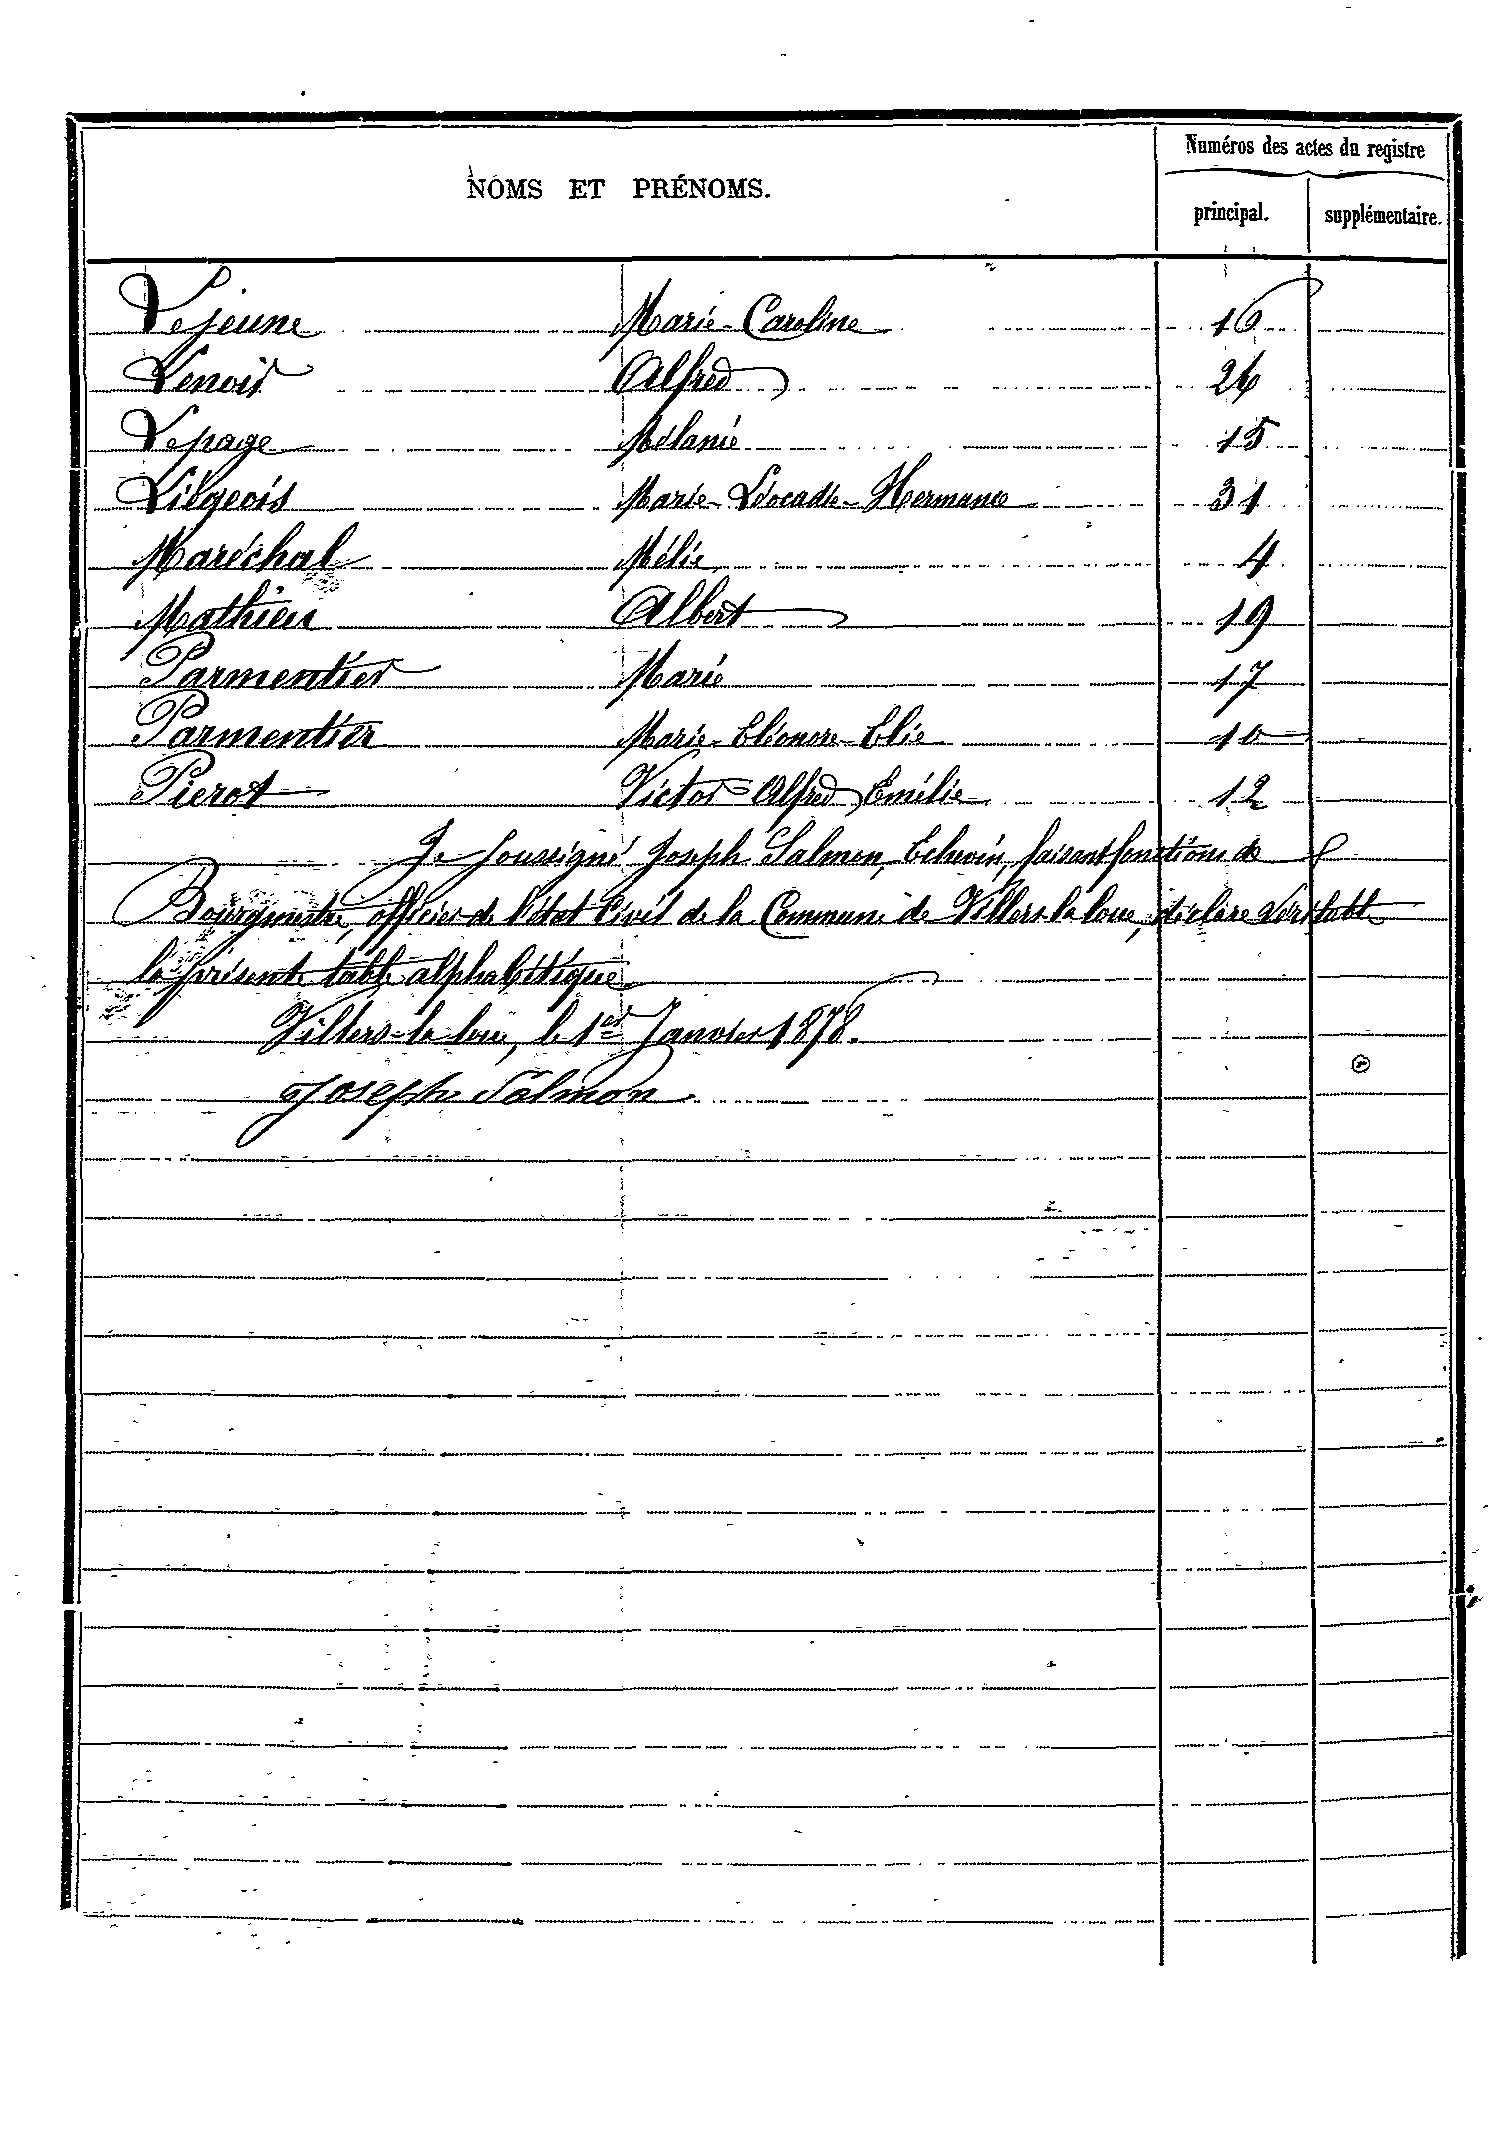 NOMS ET PRÉNOMS.
Numéros des actes du registre
principal. supplémentaire.
Lejeune Marie-Caroline 16
Lenoir Alfred 26
Lepage Mélanie 15
Liégeois Marie-Léocadie-Hermance 31
Maréchal Mélie 4
Mathieu Albert 19
Parmentier Marie 17
Parmentier Marie-Eléonore-Elie 10
Pierot Victor-Alfred, Emélie 12
Je soussigné Joseph Salmon, Echevin, faisant fonctions de
Bourgmestre, officier de l'état Civil de la Commune de Villers-la-loue, déclare véritable
la présente table alphabétique
Villers-la-loue, le 1er Janvier 1878.
Joseph Salmon